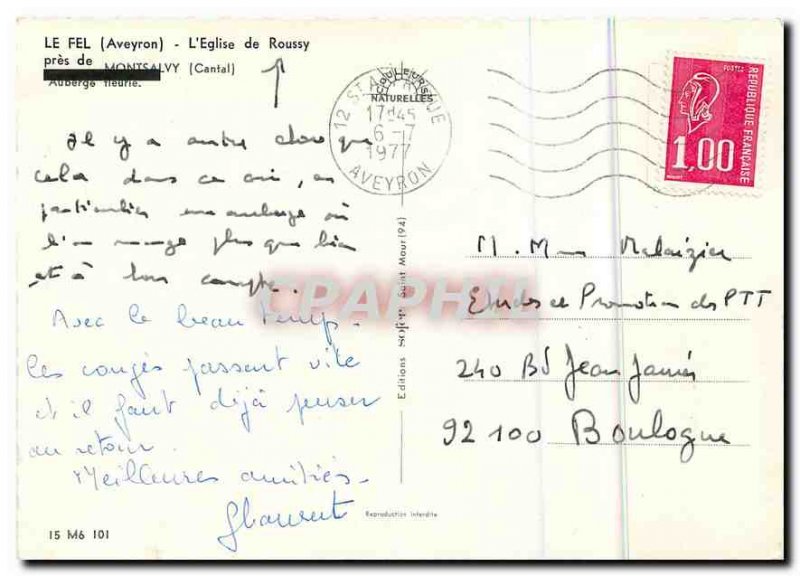 LE FEL (Aveyron) - L'Eglise de Roussy
près de MONTSALVY (Cantal)
Auberge fleurie.
COULEURS
NATURELLES
12 ST AMANS
17H45
6 - 7
1977
AVEYRON
POSTES
REPUBLIQUE FRANÇAISE
1,00
Il y a autre chose que
cela dans ce coin, en
particulier une auberge où
l'on mange plus que bien
et à bon compte.
Avec le beau temps.
les congés passent vite
et il faut déjà penser
au retour.
Meilleures amitiés.
M. Mme
Etudes et Promotion des PTT
240 Bd Jean Jaurès
92 100 Boulogne
Editions Saint Maur (94)
CPAPHIL
Reproduction interdite
15 M6 101